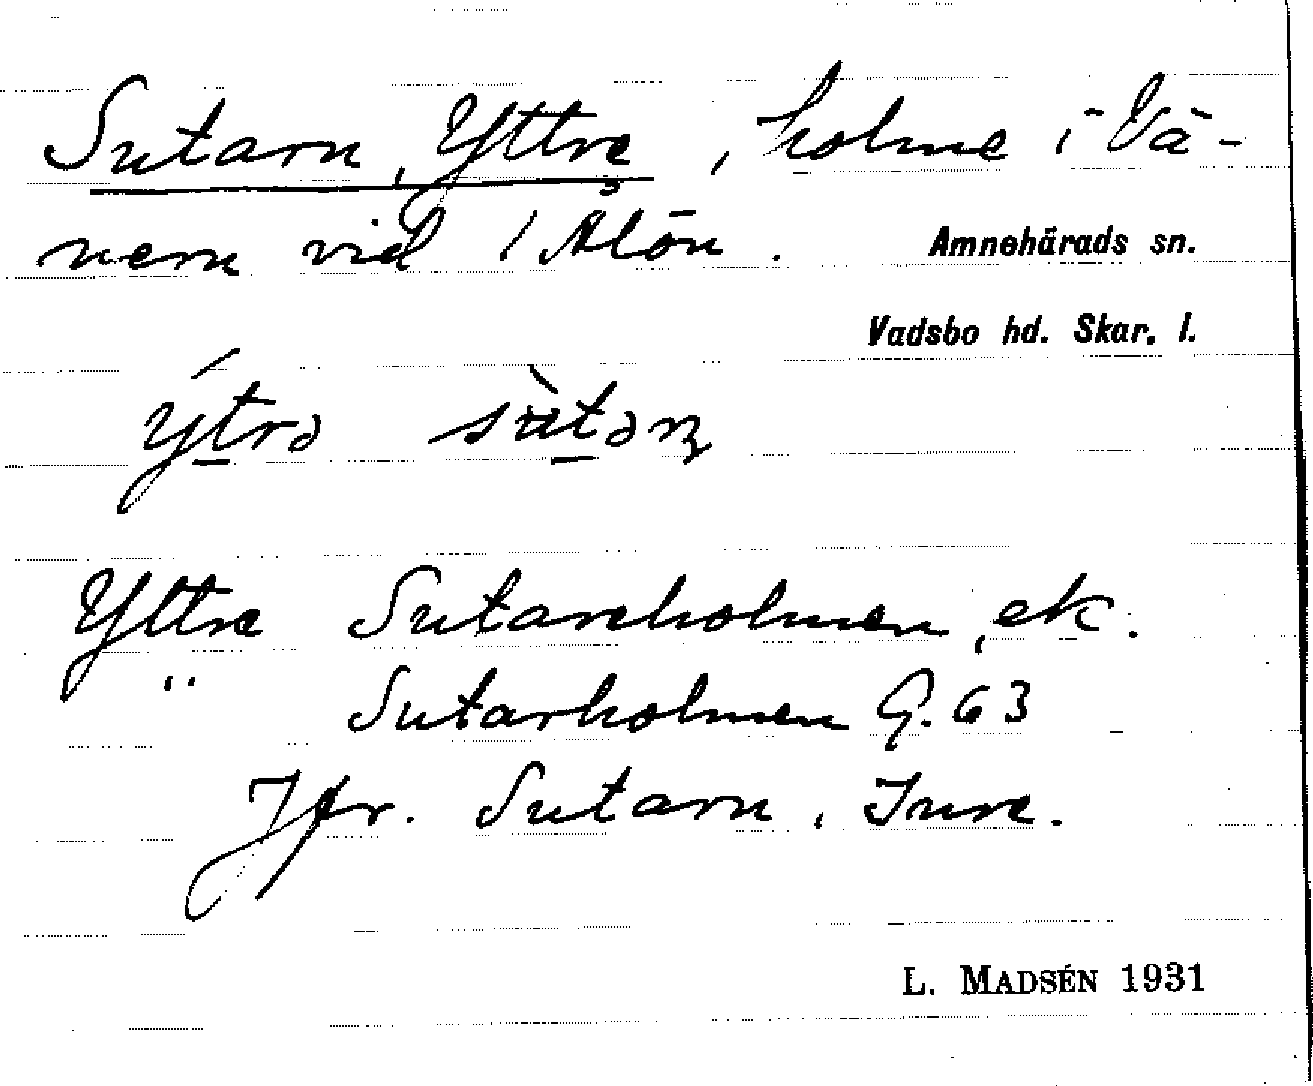 Sutarn, Yttre, holme i Vä-
nern vid / Ålön.
Amnehärads sn.
Vadsbo hd. Skar. l.
ýtrə sùtəɳ
Yttre Sutareholmen, ek.
" Sutarholmen G. 63
Jfr. Sutarn, Inre.
L. MADSÉN 1931